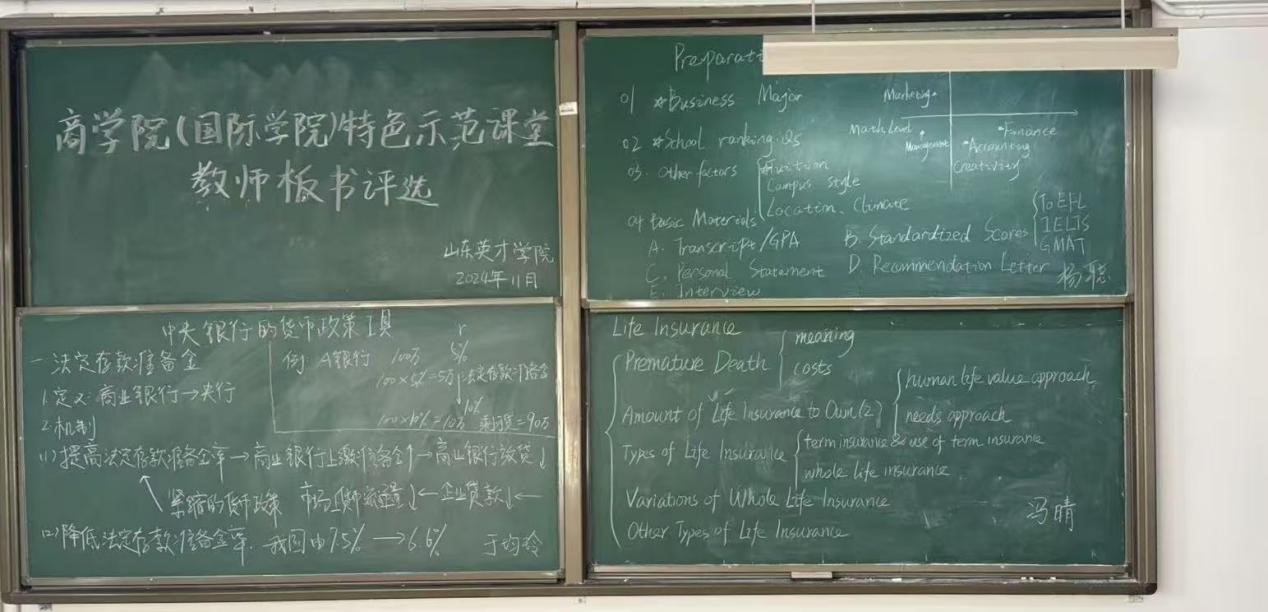 商学院(国际学院)特色示范课堂
教师板书评选
山东英才学院
2024年11月
中央银行的货币政策工具
一. 法定存款准备金
1.定义: 商业银行→央行
2.机制
例: A银行 100万 5%
r
100×5%=5万 法定存款准备金
↓10%
100×10%=10万 剩贷=90万
(1)提高法定存款准备金率→商业银行上缴准备金↑→商业银行放贷↓
紧缩的货币政策 市场上货币流通量↓←企业贷款↓←
(2)降低法定存款准备金率. 我国由7.5%→6.6%
于均玲
01 *Business Major
02 *School ranking. Qs
03. Other factors
Tuition
Campus style
Location, Climate
Marketing
Math Level
Management
Finance
Accounting
Creativity
04 Basic Materials
A. Transcript/GPA B. Standardized Scores
ToEFL
IELTS
GMAT
C. Personal Statement D. Recommendation Letter
E. Interview
杨聪
Life Insurance
Premature Death
meaning
costs
Amount of Life Insurance to Own(2)
human life value approach
needs approach
Types of Life Insurance
term insurance & use of term insurance
whole life insurance
Variations of Whole Life Insurance
Other Types of Life Insurance
冯晴